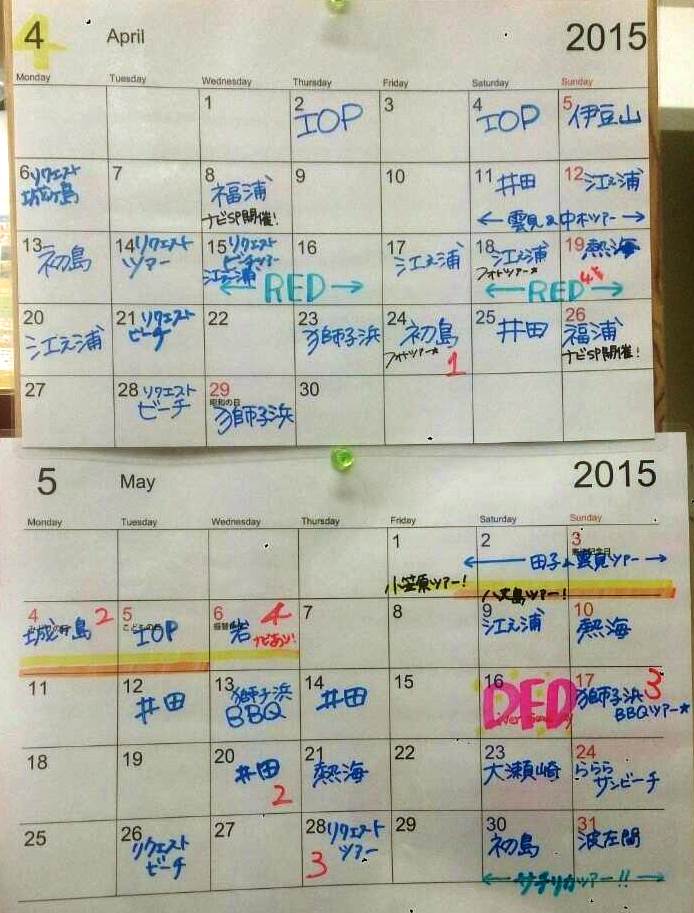 4 April 2015
Monday Tuesday Wednesday Thursday Friday Saturday Sunday
1 2 3 4 5
IOP IOP 伊豆山
6 7 8 9 10 11 12
リクエスト
城ヶ島 福浦 井田 江之浦
ナビSP開催!
雲見&中木ツアー
13 14 15 16 17 18 19
初島 リクエスト
ツアー リクエスト
ビーチツアー
江之浦 江之浦 江之浦 熱海
フォトツアー★
RED RED
20 21 22 23 24 25 26
江之浦 リクエスト
ビーチ 獅子浜 初島 井田 福浦
フォトツアー★ ナビSP開催!
1
27 28 29 30
昭和の日
リクエスト
ビーチ 獅子浜
5 May 2015
Monday Tuesday Wednesday Thursday Friday Saturday Sunday
1 2 3
田子&雲見ツアー
小笠原ツアー! 八丈島ツアー!
4 5 6 7 8 9 10
2 こどもの日 4
城ヶ島 IOP 岩 江之浦 熱海
ナビあり!
11 12 13 14 15 16 17
井田 獅子浜
BBQ 井田 RED 獅子浜 3
BBQツアー★
18 19 20 21 22 23 24
井田 熱海 大瀬崎 ららら
サンビーチ
2
25 26 27 28 29 30 31
リクエスト
ビーチ リクエスト
ツアー 初島 波左間
3
サチリカツアー!!